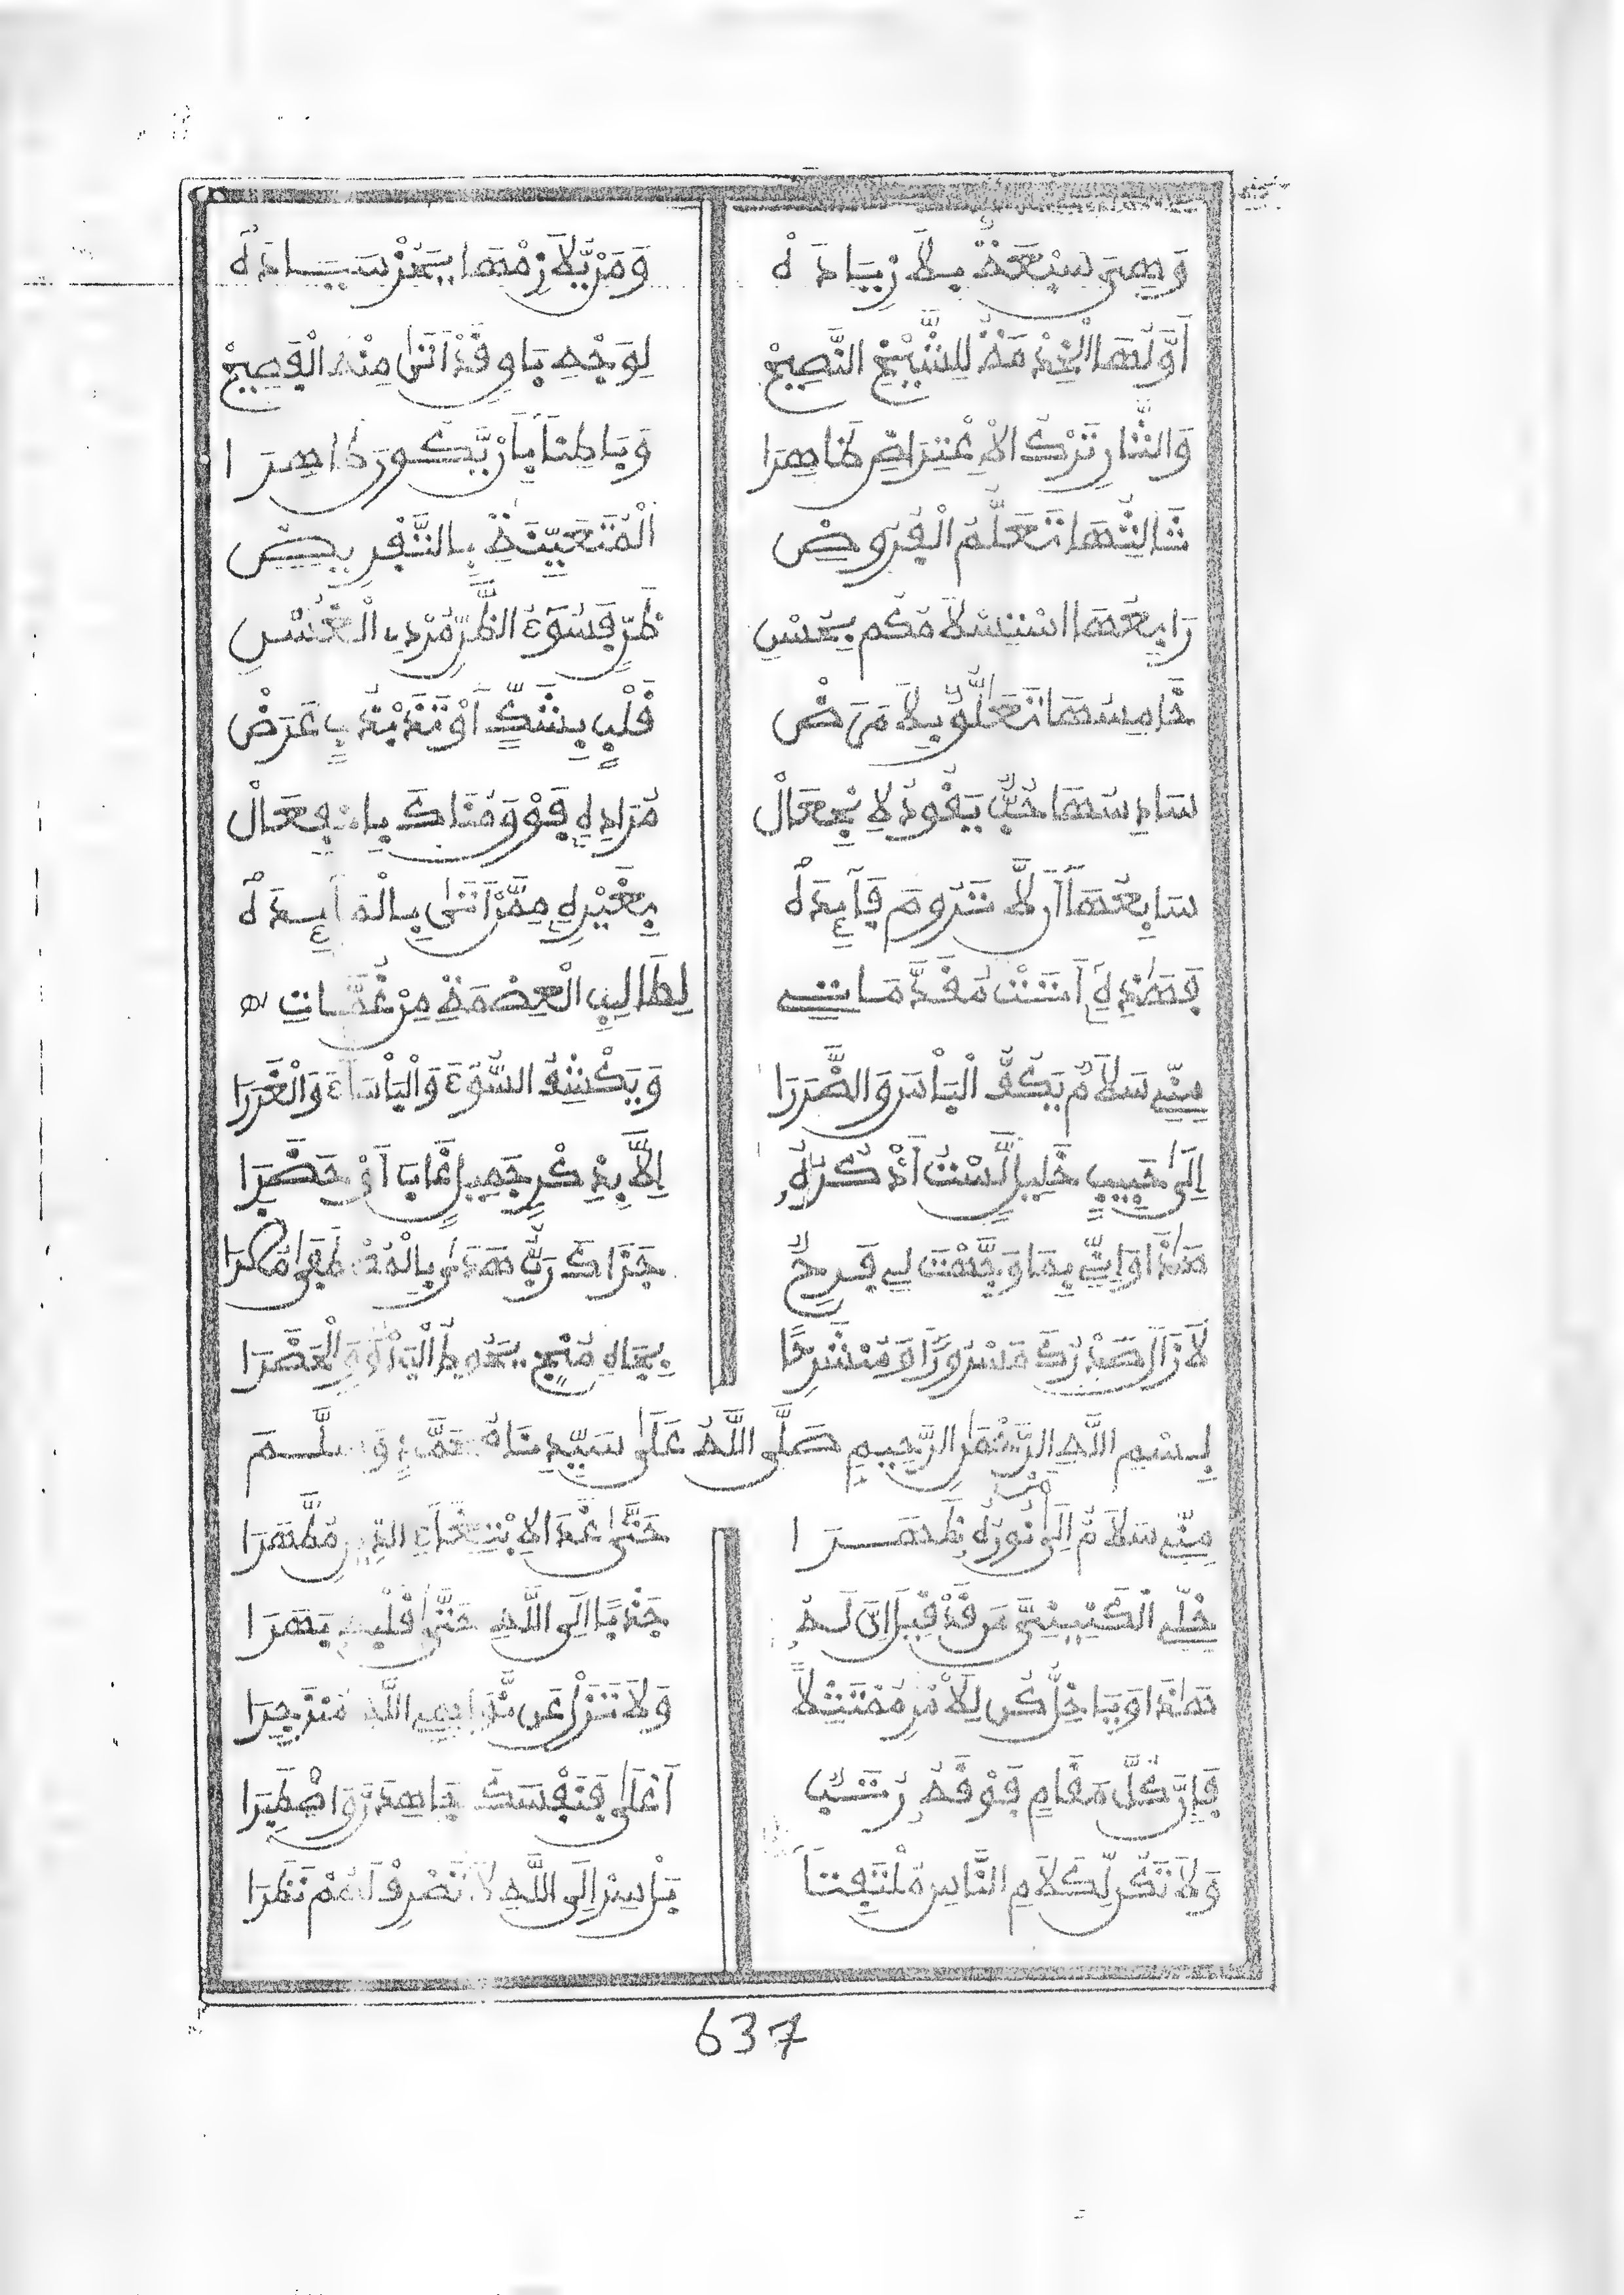 وَهِيَ سَبْعَةٌ بِلَا زِيَادَهْ وَمَنْ يُّلَازِمْهَا يَحُزْ سِيَادَهْ
أَوَّلُهَا الْخِدْمَةُ لِلشَّيْخِ النَّصِيحْ لِوَجْهِ بَاقٍ قَدْ أَتَى مِنْهُ الْفَصِيحْ
وَالثَّانِ تَرْكُ الِاعْتِرَاضِ ظَاهِرَا وَبَاطِنًا بِأَنْ يَّكُونَ طَاهِرَا
ثَالِثُهَا تَعَلُّمُ الْفُرُوضِ الْمُتَعَيِّنَةِ بِالتَّفْرِيضِ
رَابِعُهَا اسْتِسْلَامُكُم بِحُسْنِ ظَنٍّ فَسُوءُ الظَّنِّ مُرْدِي
خَامِسُهَا تَعَلُّقٌ بِلَا مَرَضْ قَلْبٍ بِشَكٍّ أَوْ تَذَبْذُبٍ عَرَضْ
سَادِسُهَا حُبٌّ يَقُودُ لِانْجِعَالْ مُرَادِهِ فَوْقَ مُنَاكَ بِانْفِعَالْ
سَابِعُهَا أَن لَّا تَرُومَ فَائِدَهْ بِغَيْرِهِ مِمَّنْ أَتَى بِالْمَائِدَهْ
فَهَذِهِ أَتَتْ مُقَدَّمَاتِ لِطَالِبِ الْعِصْمَةِ مِنْ غُمَّاتِ
مِنِّي سَلَامٌ يَكُفُّ الْبَأْسَ وَالضَّرَرَا وَيَكْشِفُ السُّوءَ وَالْبَأْسَاءَ وَالْغَرَرَا
إِلَى حَبِيبٍ خَلِيلٍ لَّسْتُ أَذْكُرُهُ إِلَّا بِذِكْرٍ جَمِيلٍ غَابَ أَوْ حَضَرَا
هَذَا وَإِنِّي بِمَا وَجَّهْتَ لِي فَرِحٌ جَزَاكَ رَبُّ هَدَى
لَا زَالَ صَدْرُكَ مَسْرُورًا وَمُنْشَرِحًا بِجَاهِ مُنْجٍ يَحُوطُ الْبَدْوَ وَالْحَضَرَا
بِسْمِ اللَّهِ الرَّحْمَنِ الرَّحِيمِ صَلَّى اللَّهُ عَلَى سَيِّدِنَا مُحَمَّدٍ وَسَلَّمَ
مِنِّي سَلَامٌ إِلَى مَنْ نُورُهُ ظَهَرَا حَتَّى غَدَا لِابْتِغَاءِ الدِّينِ مُطَّهَرَا
خِلِّي قَدْ قِيلَ إِنَّ لَهُ جَذْبًا إِلَى اللَّهِ حَتَّى قَلْبَهُ بَهَرَا
هَذَا وَيَا خِلُّ كُن لِلْأَمْرِ مُمْتَثِلًا وَلَا تَزَلْ عَن نَّوَاهِي اللَّهِ مُنْزَجِرَا
فَإِنَّ كُلَّ مَقَامٍ فَوْقَهُ رُتَبٌ أَعْلَى فَنَفْسَكَ جَاهِدَنْ وَاصْطَبِرَا
وَلَا تَكُن لِّكَلَامِ النَّاسِ مُلْتَفِتًا بَلْ سِرْ إِلَى اللَّهِ لَا تَصْرِفْ لَهُمْ نَظَرَا
637